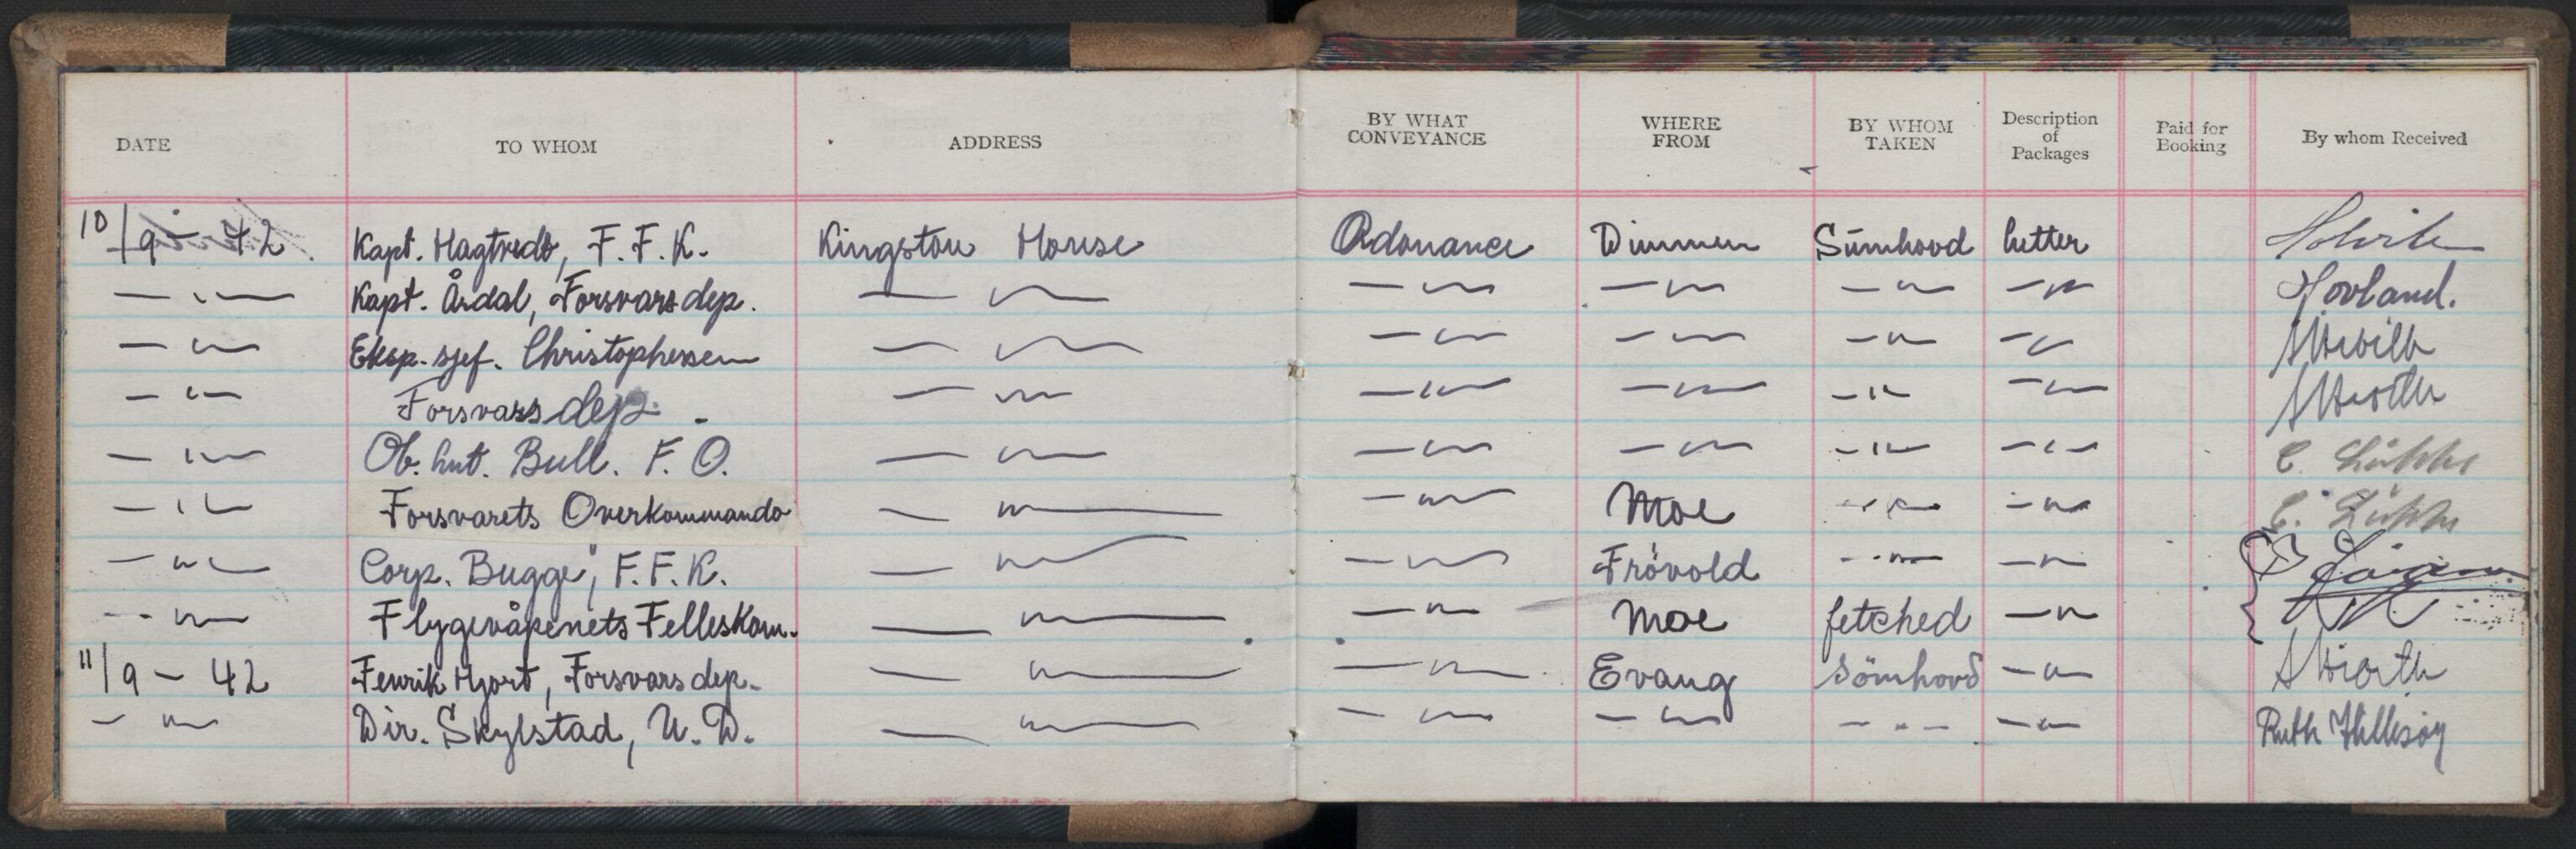 DATE TO WHOM ADDRESS BY WHAT CONVEYANCE WHERE FROM BY WHOM TAKEN Description of Packages Paid for Booking By whom Received
10/9 - 42. Kapt. Hagtvedt, F. F. K. Kingston House Ordonance Dimmen Sümhovd letter
— " — Kapt. Årdal, Forsvarsdep. — " — — " — — " — — " — — " — Hovland.
— " — Eksp. sjef. Christophersen — " — — " — — " — — " — — " —
— " — Forsvarsdep. — " — — " — — " — — " — — " —
— " — Ob. lnt. Bull. F. O. — " — — " — — " — — " — — " —
— " — Forsvarets Overkommando — " — — " — Moe — " — — " —
— " — Corp. Bugge, F. F. K. — " — — " — Frövold — " — — " —
— " — Flygevåpenets Felleskom. — " — — " — Moe fetched — " —
11/9 - 42 Fenrik Hjort, Forsvarsdep. — " — — " — Evang Sömhovd — " —
— " — Dir. Skylstad, U. D. — " — — " — — " — — " — — " — Ruth Hillesøy